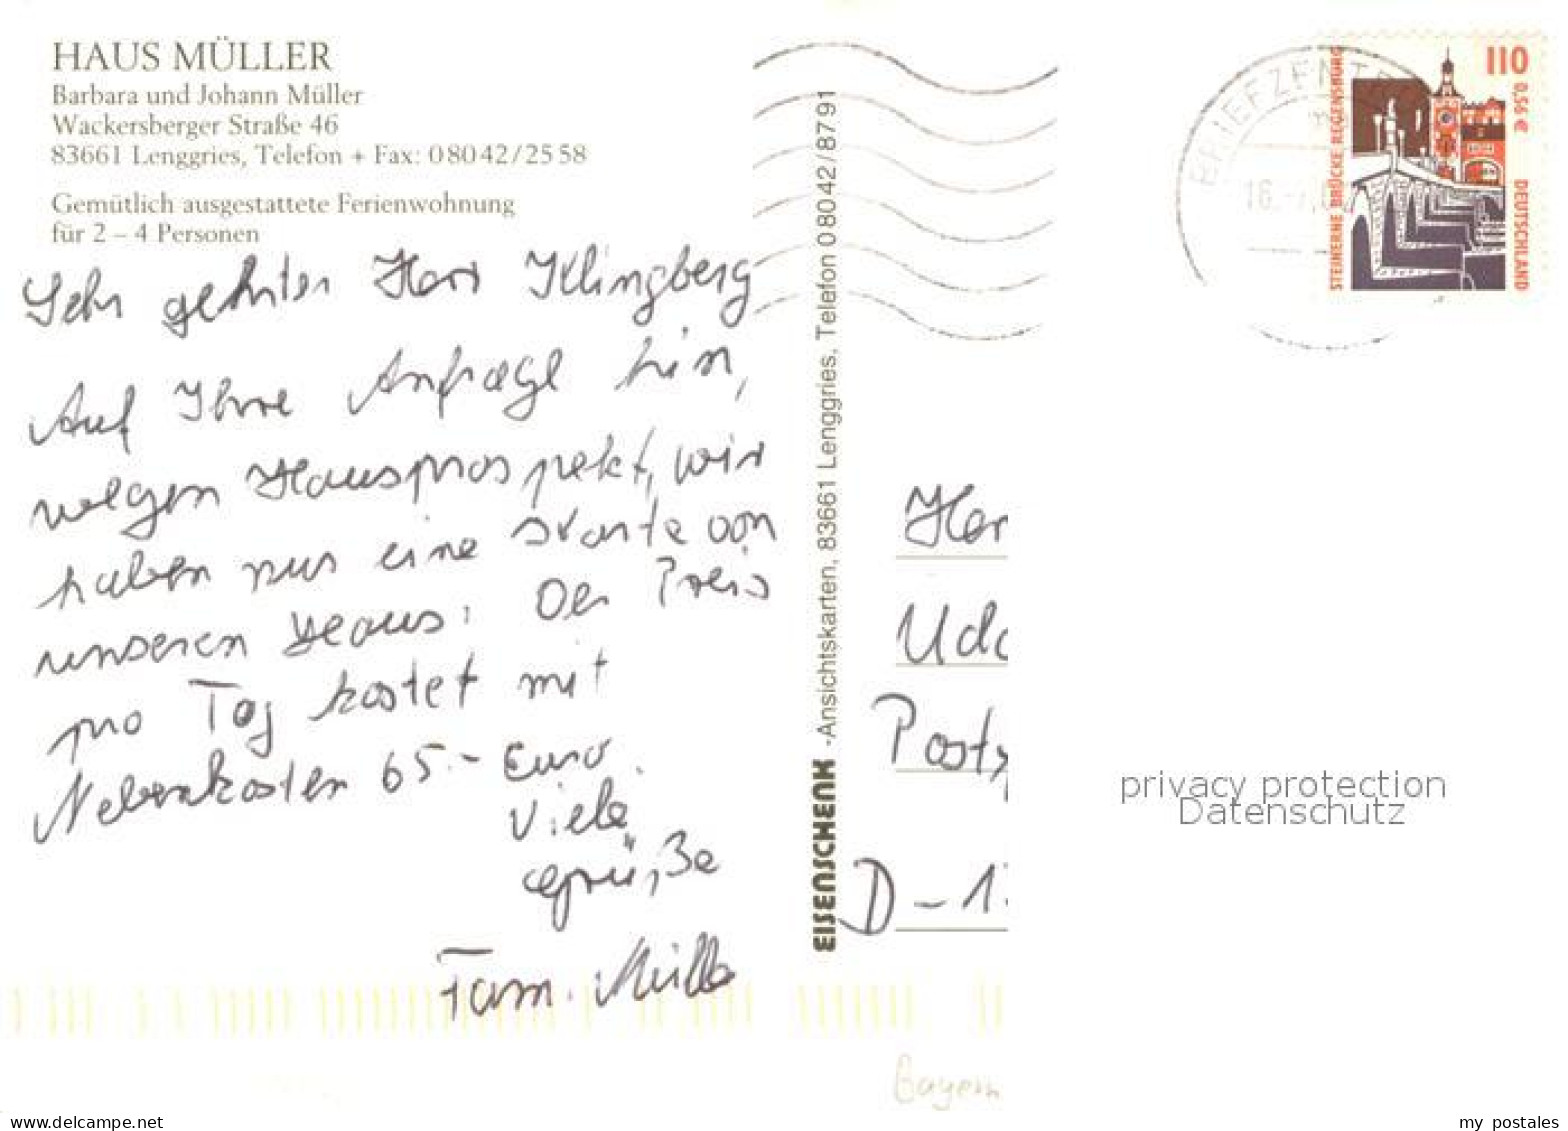 HAUS MÜLLER
Barbara und Johann Müller
Wackersberger Straße 46
83661 Lenggries, Telefon + Fax: 08042/2558
Gemütlich ausgestattete Ferienwohnung
für 2 – 4 Personen
Sehr gehrter Herr Klingberg
Auf Ihre Anfrage hin,
wegen Hausprospekt, wir
haben nur eine Karte von
unseren Haus. Der Preis
pro Tag kostet mit
Nebenkosten 65.- Euro.
Viele
Grüße
Fam. Müller
EISENSCHENK -Ansichtskarten, 83661 Lenggries, Telefon 08042/8791
BRIEFZENTR
110
0,56 €
DEUTSCHLAND
STEINERNE BRÜCKE REGENSBURG
Her
Udo
Posts
D - 1
privacy protection
Datenschutz
Bayern
www.delcampe.net
my_postales